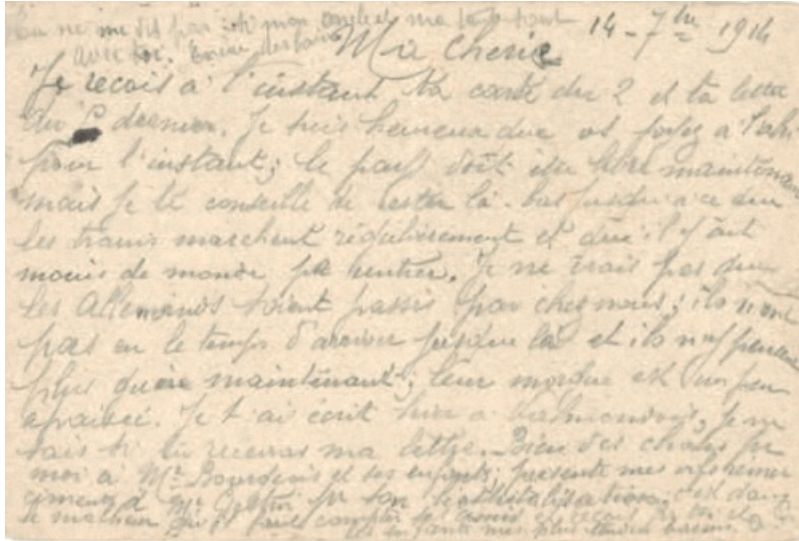 Tu ne me dis pas si mon oncle et ma tante sont
avec toi. Encore des baisers
14 - 7bre 1914
Ma Cherie
Je recois à l'instant ta carte du 2 et ta lettre
du 5 dernier. Je suis heureux que vs soyez à l'abri
pour l'instant; le pays doit être libre maintenant
mais je te conseille de rester là-bas jusqu'à ce que
les trains marchent régulièrement et qu'il y ait
moins de monde pr rentrer. Je ne crois pas que
les Allemands soient passés par chez nous; ils n'ont
pas eu le temps d'arriver jusque là et ils n'y pensent
plus guère maintenant; leur morgue est un peu
apaisée. Je t'ai écrit hier à Valmondois, je ne
sais si tu recevras ma lettre. Bien des choses pr
moi à Me Bourgeois et ses enfants; présente mes vifs remer
ciements à Mr pr son hospitalisation; c'est dans
le malheur qu'il faut compter ses amis. recois
les enfants mes plus tendres baisers